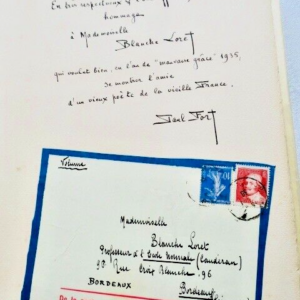 En très respectueux &
hommages
à Mademoiselle
Blanche Loret
qui voulut bien, en l'an de "mauvaise grâce" 1935,
se montrer l'amie
d'un vieux poète de la vieille France.
Paul Fort
Mademoiselle
Blanche Loret
Professeur d'École Normale (Caudéran)
98 Rue Croix Blanche, 96
BORDEAUX
Bordeaux